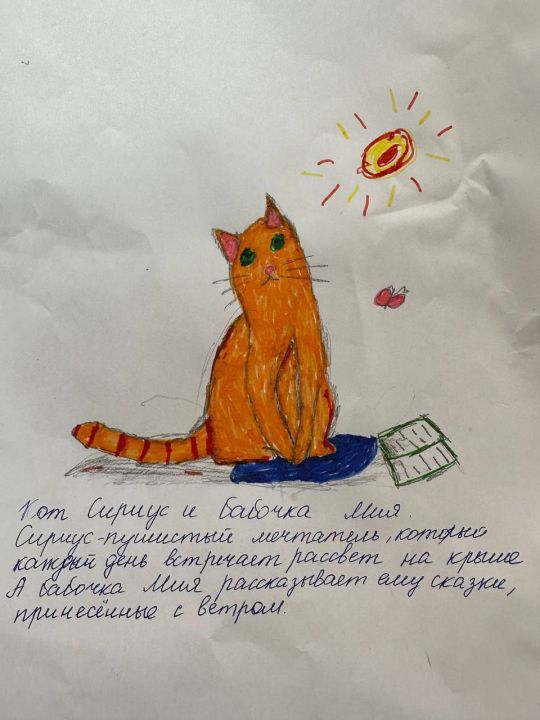 Кот Сириус и бабочка Мия.
Сириус-пушистый мечтатель, который
каждый день встречает рассвет на крыше
А бабочка Мия рассказывает ему сказки,
принесённые с ветром.